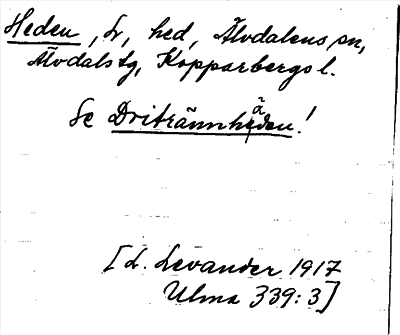 Heden, Lr, hed, Älvdalens sn,
Älvdals tg, Kopparbergs l.
Se Dritrännhäden!
[L. Levander 1917
Ulma 339:3]